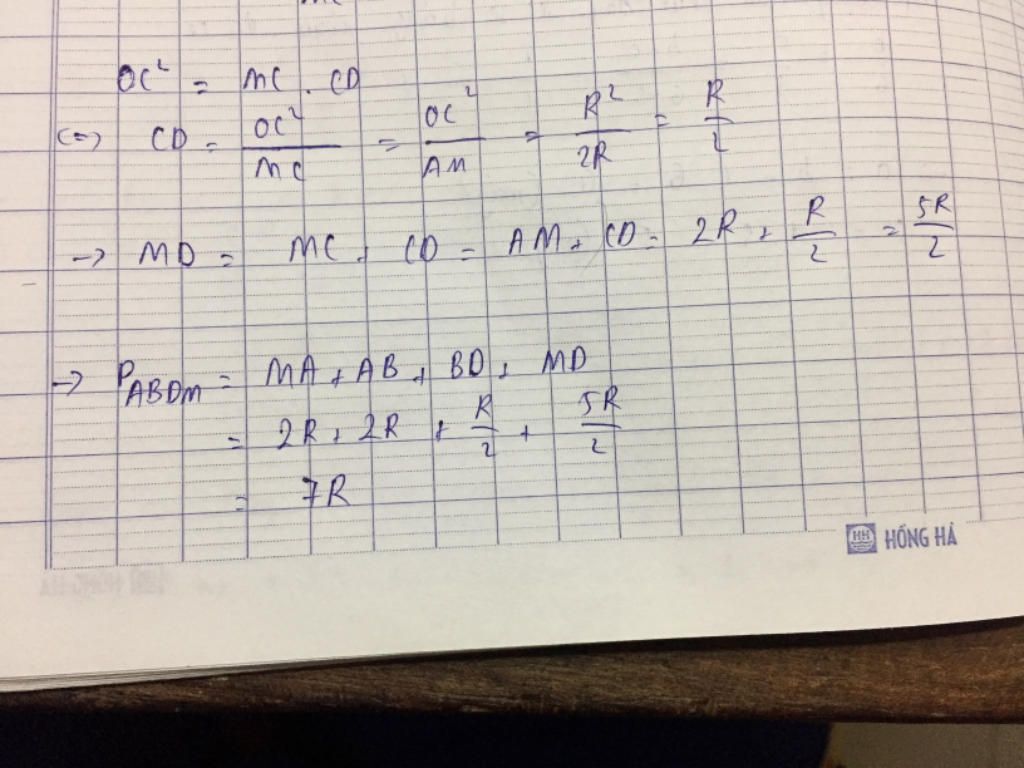 OC² = MC . CD
(=) CD = OC²/MC = OC²/AM = R²/2R = R/2
-> MD = MC + CD = AM + CD = 2R + R/2 = 5R/2
-> P_ABDM = MA + AB + BD + MD
= 2R + 2R + R/2 + 5R/2
= 7R
HH HỒNG HÀ